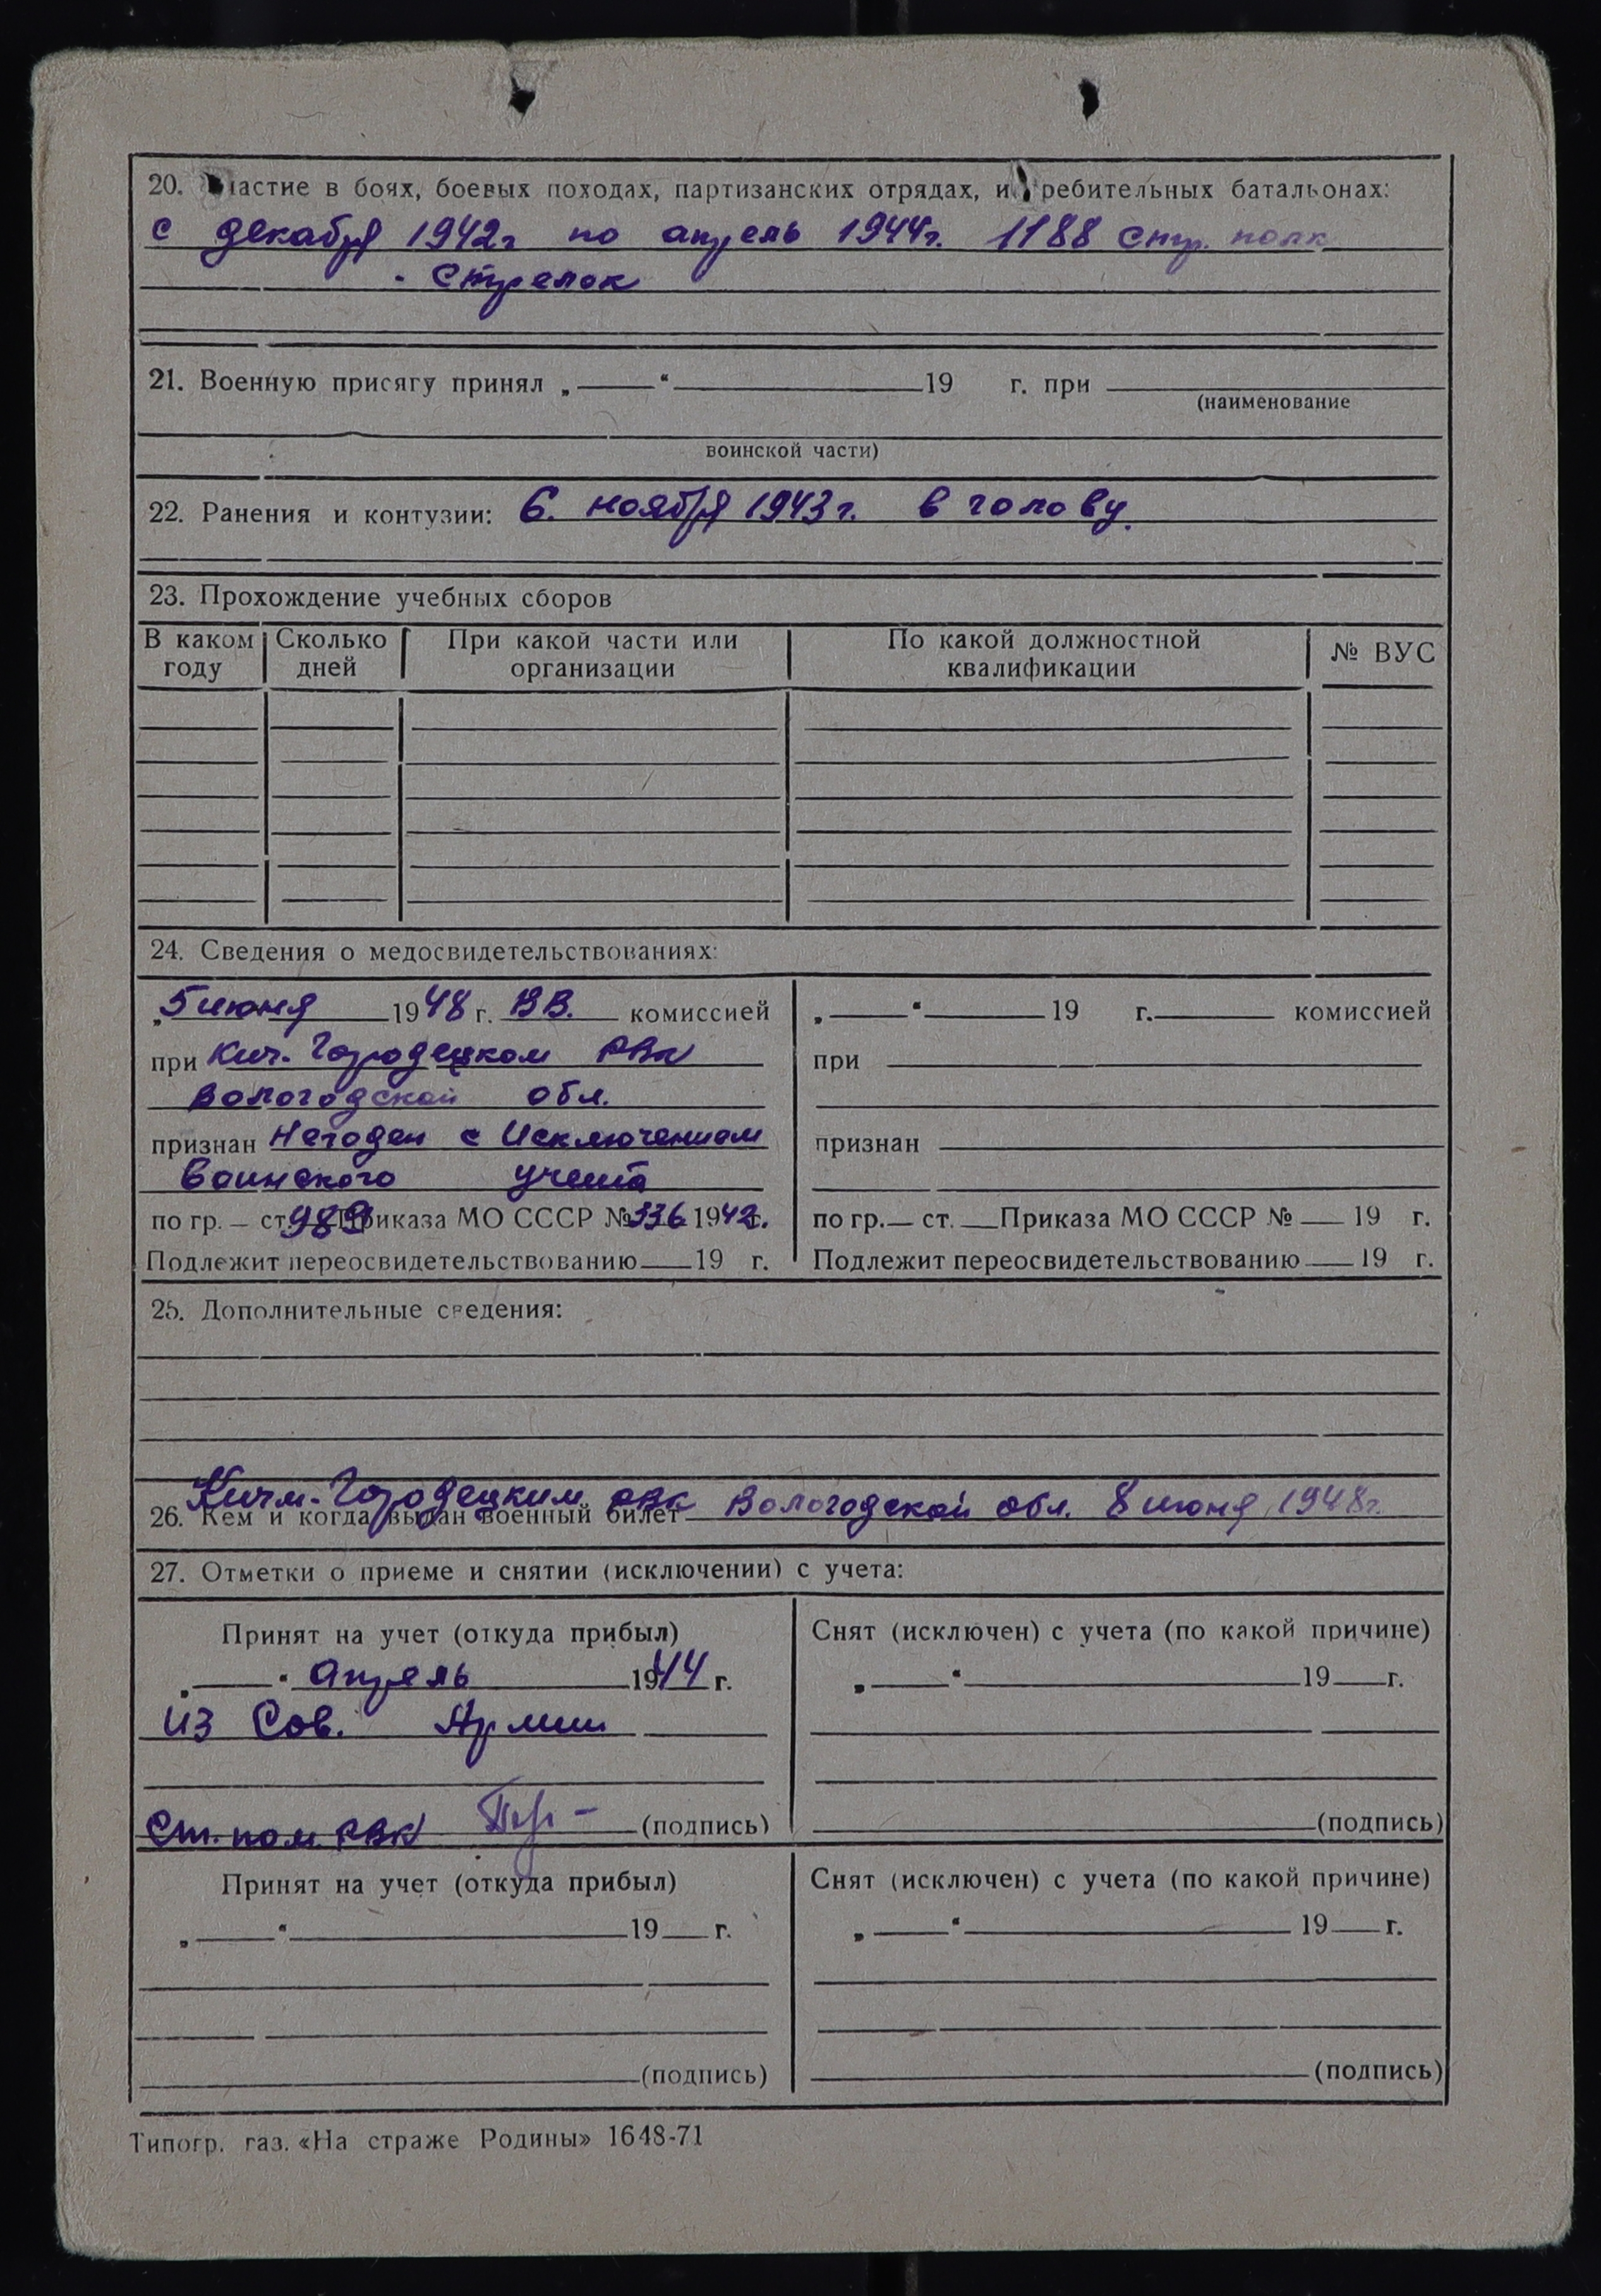 20. Участие в боях, боевых походах, партизанских отрядах, истребительных батальонах:
с декабря 1942г по апрель 1944г. 1188 стр. полк
- стрелок
21. Военную присягу принял „ “ 19 г. при
(наименование
воинской части)
22. Ранения и контузии: 6. ноября 1943г. в голову.
23. Прохождение учебных сборов
В каком году Сколько дней При какой части или организации По какой должностной квалификации № ВУС
24. Сведения о медосвидетельствованиях:
„5 июня 1948 г. ВВ. комиссией
при Кич. Городецком РВК
Вологодской обл.
признан Негоден с Исключением
воинского учета
по гр. — ст. 98 Приказа МО СССР № 336 1942 г.
Подлежит переосвидетельствованию 19 г.
„ “ 19 г. комиссией
при
признан
по гр. — ст. Приказа МО СССР № 19 г.
Подлежит переосвидетельствованию 19 г.
25. Дополнительные сведения:
26. Кем и когда выдан военный билет Кичм-Городецким РВК Вологодской обл. 8 июня 1948г.
27. Отметки о приеме и снятии (исключении) с учета:
Принят на учет (откуда прибыл)
„ “ апрель 1944 г.
из Сов. Армии
Ст. пом. РВК (подпись)
Снят (исключен) с учета (по какой причине)
„ “ 19 г.
(подпись)
Принят на учет (откуда прибыл)
„ “ 19 г.
(подпись)
Снят (исключен) с учета (по какой причине)
„ “ 19 г.
(подпись)
Типогр. газ. «На страже Родины» 1648-71